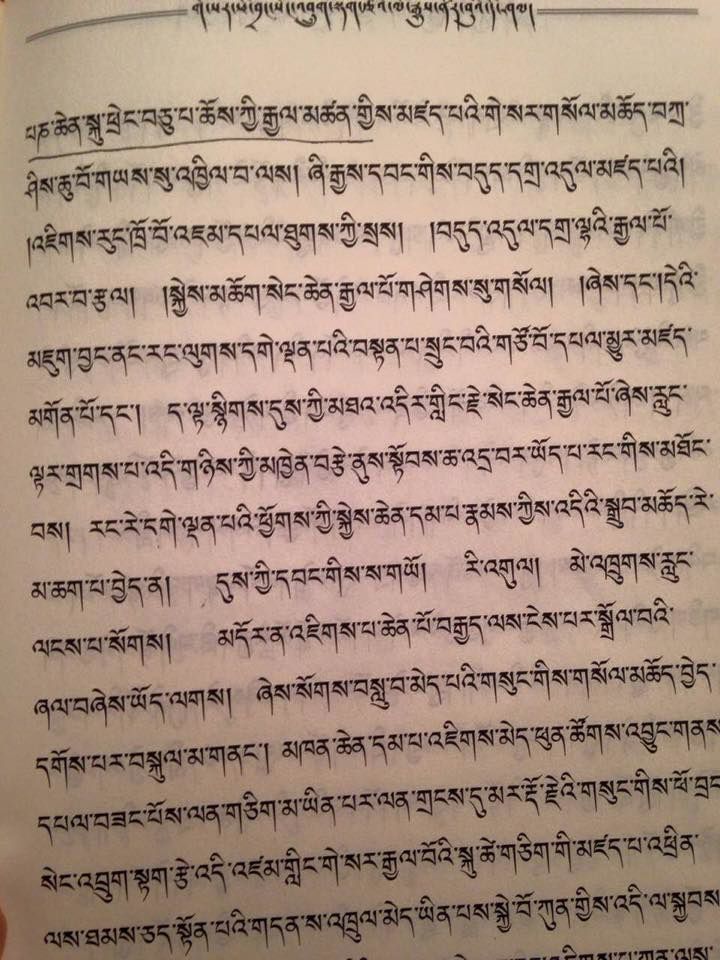 པཎ་ཆེན་སྐུ་ཕྲེང་བཅུ་པ་ཆོས་ཀྱི་རྒྱལ་མཚན་གྱིས་མཛད་པའི་གེ་སར་གསོལ་མཆོད་བཀྲ་
ཤིས་ཆུ་བོ་གཡས་སུ་འཁྱིལ་བ་ལས། ཞི་རྒྱས་དབང་གིས་བདུད་དགྲ་འདུལ་མཛད་པའི།
།འཇིགས་རུང་ཁྲོ་བོ་འཇམ་དཔལ་ཐུགས་ཀྱི་སྲས། །བདུད་འདུལ་དགྲ་ལྷའི་རྒྱལ་པོ་
འབར་བ་རྩལ། །སྐྱེས་མཆོག་སེང་ཆེན་རྒྱལ་པོ་གཤེགས་སུ་གསོལ། །ཞེས་དང་།དེའི་
མཇུག་བྱང་ནང་རང་ལུགས་དགེ་ལྡན་པའི་བསྟན་པ་སྲུང་བའི་གཙོ་བོ་དཔལ་མྱུར་མཛད་
མགོན་པོ་དང་། ད་ལྟ་སྙིགས་དུས་ཀྱི་མཐའ་འདིར་གླིང་རྗེ་སེང་ཆེན་རྒྱལ་པོ་ཞེས་རླུང་
ལྟར་གྲགས་པ་འདི་གཉིས་ཀྱི་མཁྱེན་བརྩེ་ནུས་སྟོབས་ཆ་འདྲ་བར་ཡོད་པ་རང་གིས་མཐོང་
བས། རང་རེ་དགེ་ལྡན་པའི་ཕྱོགས་ཀྱི་སྐྱེས་ཆེན་དམ་པ་རྣམས་ཀྱིས་འདིའི་སྒྲུབ་མཆོད་རེ་
མ་ཆག་པ་བྱེད་ན། དུས་ཀྱི་དབང་གིས་ས་གཡོ། རི་འགུལ། མེ་འཁྲུགས་རླུང་
ལངས་པ་སོགས། མདོར་ན་འཇིགས་པ་ཆེན་པོ་བརྒྱད་ལས་ངེས་པར་སྒྲོལ་བའི་
ཞལ་བཞེས་ཡོད་ལགས། ཞེས་སོགས་བསླུ་བ་མེད་པའི་གསུང་གིས་གསོལ་མཆོད་བྱེད་
དགོས་པར་བསྐུལ་མ་གནང་། མཁན་ཆེན་དམ་པ་འཇིགས་མེད་ཕུན་ཚོགས་འབྱུང་གནས
དཔལ་བཟང་པོས་ལན་གཅིག་མ་ཡིན་པར་ལན་གྲངས་དུ་མར་རྡོ་རྗེའི་གསུང་གིས་ཕོ་བྲང
སེང་འབྲུག་སྟག་རྩེ་འདི་འཛམ་གླིང་གེ་སར་རྒྱལ་པོའི་སྐུ་ཚེ་གཅིག་གི་མཛད་པ་འཕྲིན་
ལས་ཐམས་ཅད་སྟོན་པའི་གདན་ས་འཁྲུལ་མེད་ཡིན་པས་སྐྱེ་བོ་ཀུན་གྱིས་འདི་ལ་སྐྱབས